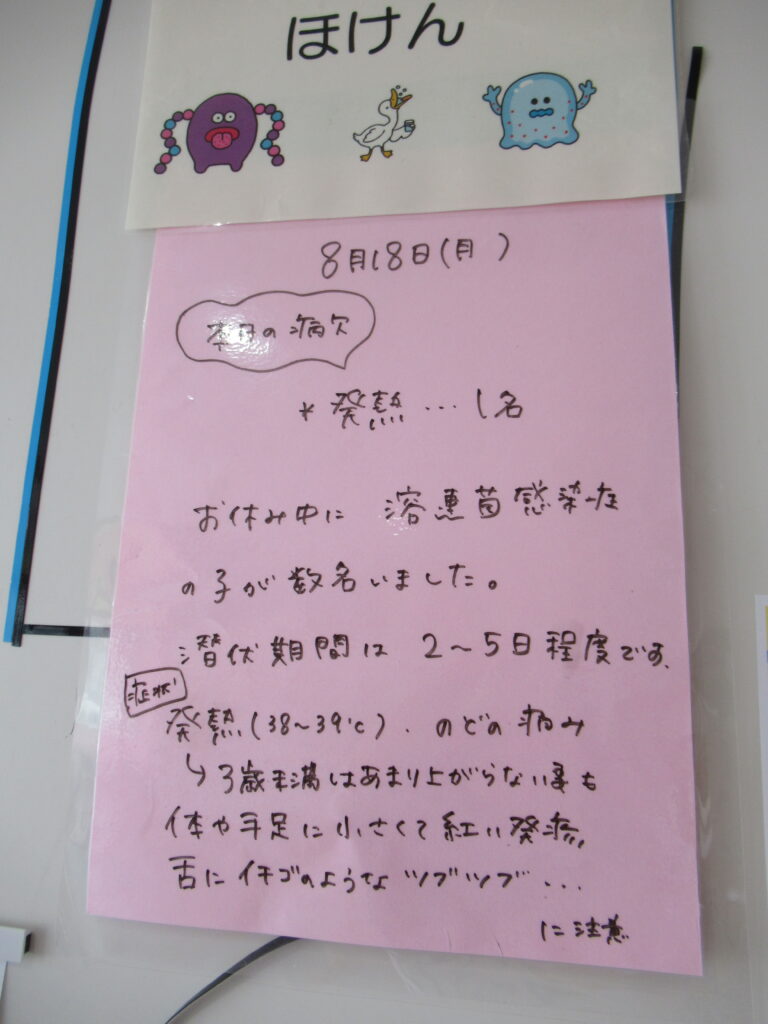 ほけん
8月18日(月)
本日の病欠
* 発熱…1名
お休み中に 溶連菌感染症
の子が数名いました。
潜伏期間は 2〜5日程度です。
症状
発熱(38〜39℃)、のどの痛み
↳3歳未満はあまり上がらない事も
体や手足に小さくて紅い発疹、
舌にイチゴのようなツブツブ...
に注意